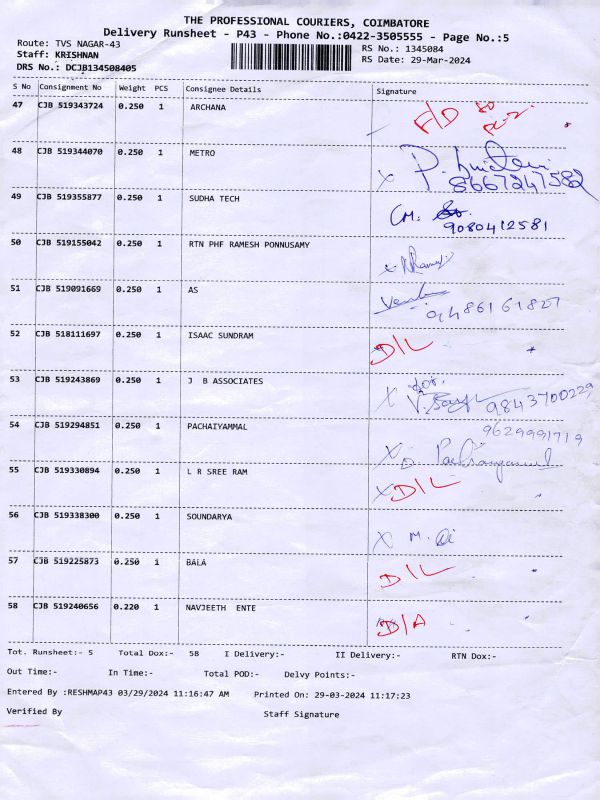 THE PROFESSIONAL COURIERS, COIMBATORE
Delivery Runsheet - P43 - Phone No.:0422-3505555 - Page No.:5
Route: TVS NAGAR-43
RS No.: 1345084
Staff: KRISHNAN
RS Date: 29-Mar-2024
DRS No.: DCJB134508405
S No Consignment No Weight PCS Consignee Details Signature
47 CJB 519343724 0.250 1 ARCHANA
48 CJB 519344070 0.250 1 METRO
8667247582
49 CJB 519355877 0.250 1 SUDHA TECH CM:
9080412581
50 CJB 519155042 0.250 1 RTN PHF RAMESH PONNUSAMY
51 CJB 519091669 0.250 1 AS
52 CJB 518111697 0.250 1 ISAAC SUNDRAM D/L
53 CJB 519243869 0.250 1 J B ASSOCIATES for.
9843700229
54 CJB 519294851 0.250 1 PACHAIYAMMAL 9629991719
55 CJB 519330894 0.250 1 L R SREE RAM X D/L
56 CJB 519338300 0.250 1 SOUNDARYA X M.
57 CJB 519225873 0.250 1 BALA D/L
58 CJB 519240656 0.220 1 NAVJEETH ENTE D/A
Tot. Runsheet:- 5 Total Dox:- 58 I Delivery:- II Delivery:- RTN Dox:-
Out Time:- In Time:- Total POD:- Delvy Points:-
Entered By :RESHMAP43 03/29/2024 11:16:47 AM Printed On: 29-03-2024 11:17:23
Verified By Staff Signature